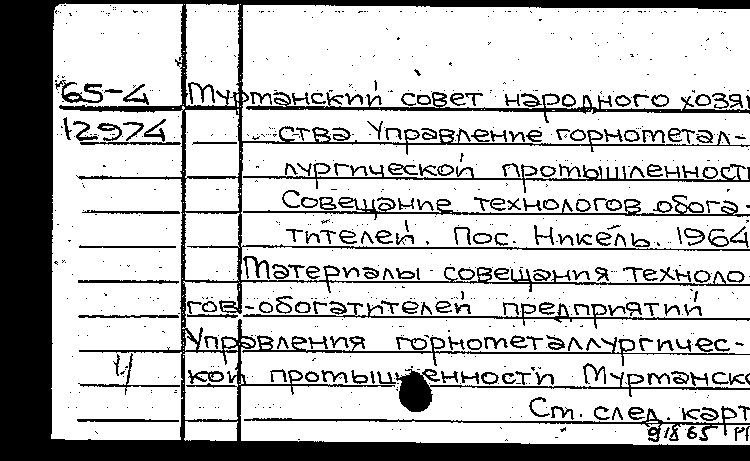 65-4 Мурманский совет народного хозяй
12974 ства. Управление горнометал-
лургической промышленности
Совещание технологов обога-
тителей. Пос. Никель. 1964
Материалы совещания техноло
гов-обогатителей предприятий
Управления горнометаллургичес-
кой промышленности Мурманско
См. след. карт
91865